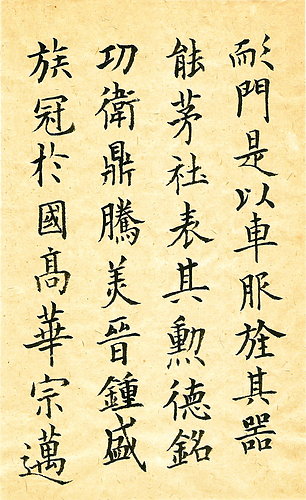 耏門是以車服旌其器
能茅社表其勳德銘
功衛鼎騰美晉鍾盛
族冠於國高華宗邁